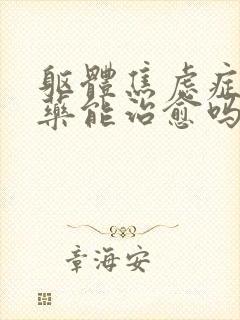 躯體焦慮症
藥能治愈吗
章海安